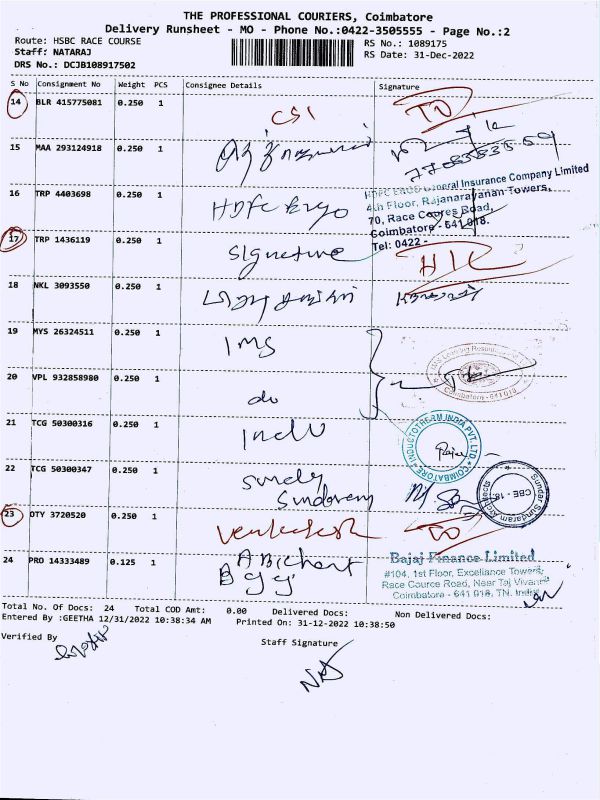 THE PROFESSIONAL COURIERS, Coimbatore
Delivery Runsheet - MO - Phone No.:0422-3505555 - Page No.:2
Route: HSBC RACE COURSE
RS No.: 1089175
Staff: NATARAJ
RS Date: 31-Dec-2022
DRS No.: DCJB108917502
S No Consignment No Weight PCS Consignee Details Signature
14 BLR 415775081 0.250 1 CSI TO
15 MAA 293124918 0.250 1
16 TRP 4403698 0.250 1 HDFC Ergo
HDFC ERGO General Insurance Company Limited
4th Floor, Rajanarayanan Towers,
70, Race Cources Road,
Coimbatore - 641 018.
Tel: 0422 -
17 TRP 1436119 0.250 1 Signature HIC
18 NKL 3093550 0.250 1
19 MYS 26324511 0.250 1 IMS
Coimbatore - 641 018
20 VPL 932858980 0.250 1 do
21 TCG 50300316 0.250 1 Indu
INDUCTOTHERM INDIA PVT. LTD. COIMBATORE
22 TCG 50300347 0.250 1 Sundaram
Sundar Sundaram Architects
CBE - 18.
23 OTY 3720520 0.250 1 Venkatesh TO
24 PRO 14333489 0.125 1
Bajaj Finance Limited
#104, 1st Floor, Excellance Towers,
Race Cource Road, Near Taj Vivanta
Coimbatore - 641 018, TN. India
Total No. Of Docs: 24 Total COD Amt: 0.00 Delivered Docs: Non Delivered Docs:
Entered By :GEETHA 12/31/2022 10:38:34 AM Printed On: 31-12-2022 10:38:50
Verified By
Staff Signature